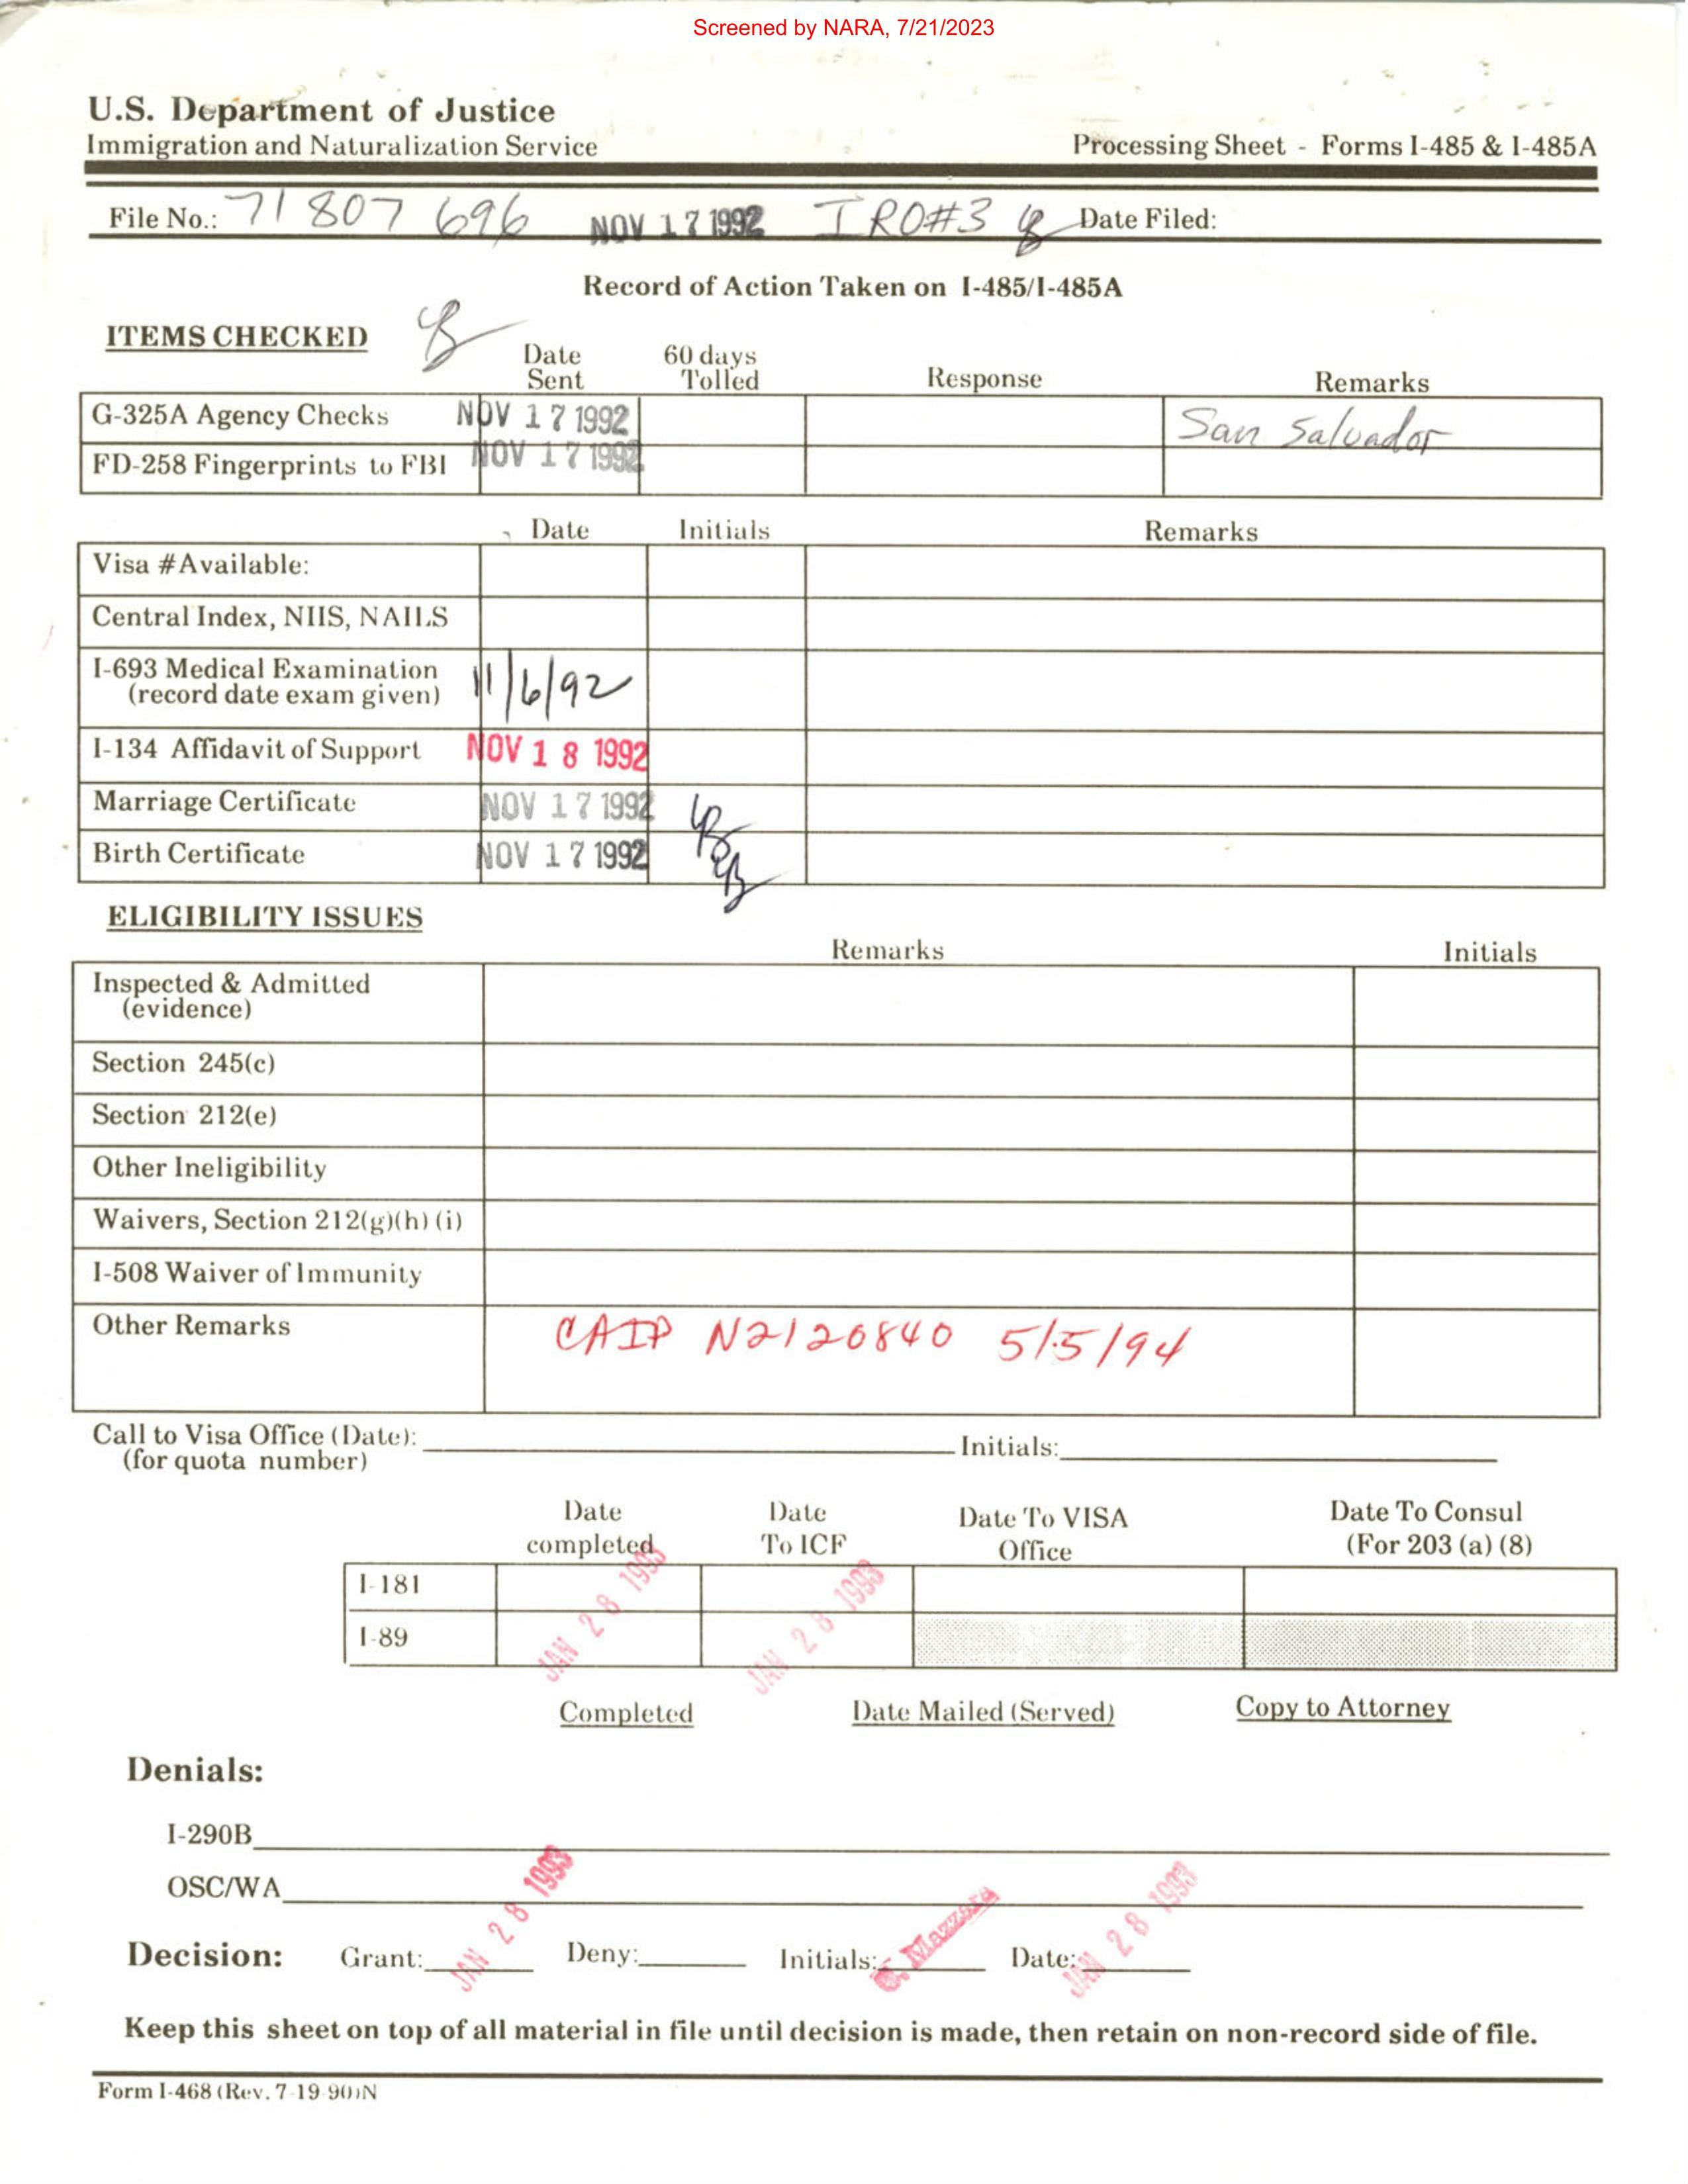 Screened by NARA, 7/21/2023
U.S. Department of Justice
Immigration and Naturalization Service
Processing Sheet - Forms I-485 & I-485A
File No.: 71 807 696 NOV 17 1992 IRO#3 Date Filed:
Record of Action Taken on I-485/I-485A
ITEMS CHECKED
Date Sent 60 days Tolled Response Remarks
G-325A Agency Checks NOV 17 1992 San Salvador
FD-258 Fingerprints to FBI NOV 17 1992
Date Initials Remarks
Visa #Available:
Central Index, NIIS, NAILS
I-693 Medical Examination 11/6/92
(record date exam given)
I-134 Affidavit of Support NOV 18 1992
Marriage Certificate NOV 17 1992
Birth Certificate NOV 17 1992
ELIGIBILITY ISSUES
Remarks Initials
Inspected & Admitted
(evidence)
Section 245(c)
Section 212(e)
Other Ineligibility
Waivers, Section 212(g)(h) (i)
I-508 Waiver of Immunity
Other Remarks CAIP N2120840 5/5/94
Call to Visa Office (Date): Initials:
(for quota number)
Date completed Date To ICF Date To VISA Office Date To Consul (For 203 (a) (8)
I-181
I-89 JAN 28 1993 JAN 28 1993
Completed Date Mailed (Served) Copy to Attorney
Denials:
I-290B
OSC/WA
Decision: Grant: JAN 28 1993 Deny: Initials: Date: JAN 28 1993
Keep this sheet on top of all material in file until decision is made, then retain on non-record side of file.
Form I-468 (Rev. 7-19-90)N